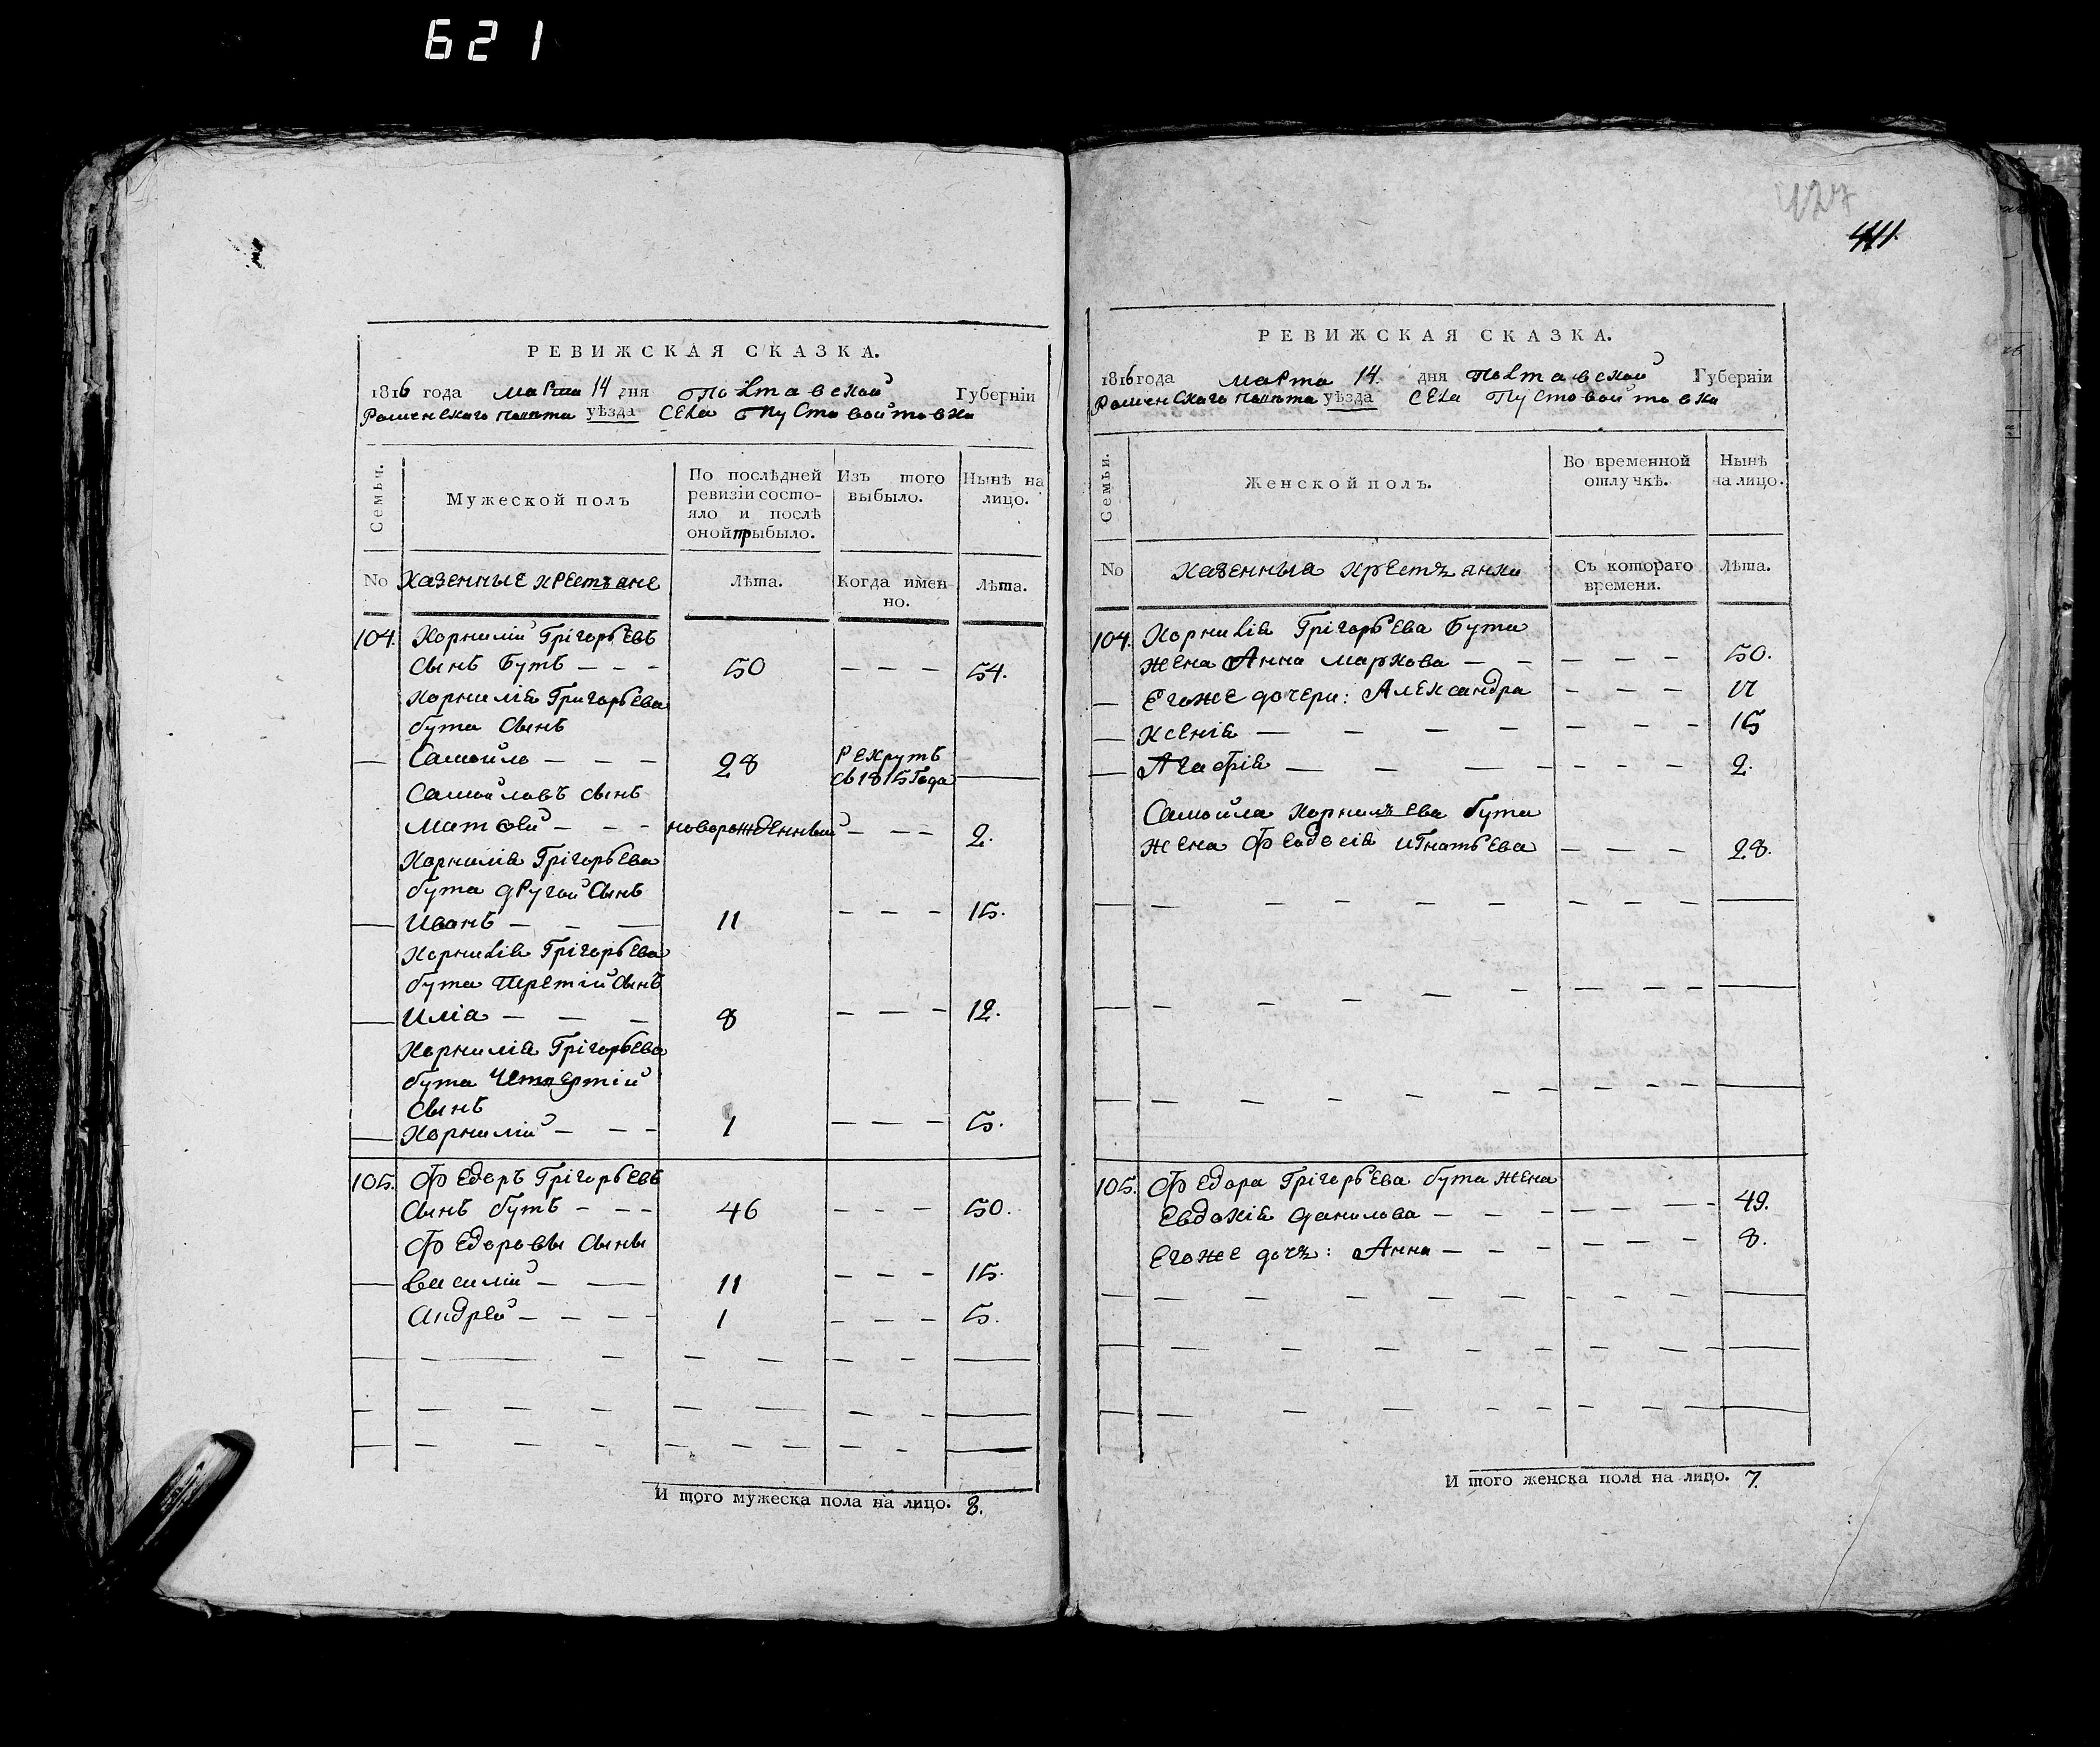 621
РЕВИЖСКАЯ СКАЗКА.
1816 года марта 14 дня Полтавской Губерніи
Роменскаго повѣта уѣзда села Пустовойтовки
Семьи.
Мужеской полъ
По послѣдней ревизіи состояло и послѣ оной прыбыло.
Изъ того выбыло.
Нынѣ на лицо.
No Казенные крестъяне
Лѣта.
Когда имен-но.
Лѣта.
104. Корнилій Грігорьевъ
сынъ Бутъ - - - 50 - - - 54.
Корнилія Григорьева
бута сынъ
Самойло - - - 28 рекрутъ
съ 1815 года
Самойловъ сынъ
Матвей - - - новорожденный - - - 2.
Корнилія Грігорьева
бута другой сынъ
Иванъ - - - 11 - - - 15.
Корнилія Грігорьева
бута третій сынъ
Илія - - - 8 - - - 12.
Корнилія Грігорьева
бута четвертій
сынъ
Корнилій - - - 1 - - - 5.
105. Федеръ Грігорьевъ
сынъ бутъ - - - 46 - - - 50.
Федоровы сыны
Василій - - 11 - - - 15.
Андрей - - - - 1 - - - 5.
И того мужеска пола на лицо. 8.
427
411.
РЕВИЖСКАЯ СКАЗКА.
1816 года марта 14. дня Полтавской Губерніи
Роменскаго повѣта уѣзда села Пустовойтовки
Семьи.
Женской полъ.
Во временной отлучкѣ.
Нынѣ на лицо.
No Казенныя крестъянки
Съ котораго времени.
Лѣта.
104. Корнилія Грігорьева Бута
жена Анна Маркова - - - - - 50.
Егоже дочери: Александра - - - 17
Ксенія - - - - - - - 15
Агафія - - - - - - - 2.
Самойла Корнилъева бута
жена Феодосія Игнатьева - - - 28.
105. Федора Грігорьева бута жена
Евдокія Данилова - - - - - - - 49.
Егоже дочъ: Анна - - - - - - 8.
И того женска пола на лицо. 7.